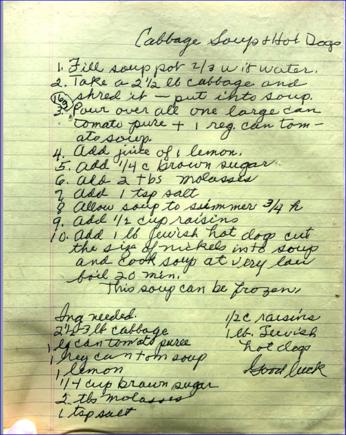 Cabbage Soup & Hot Dogs
1. Fill soup pot 2/3 w it water.
2. Take a 2 1/2 lb cabbage and
shred it — put into soup.
3. Pour over all one large can
tomato pure + 1 reg. can tom-
ato soup.
4. Add juice of 1 lemon.
5. Add 1/4 c brown sugar.
6. Add 2 tbs molasses
7. Add 1 tsp salt
8 Allow soup to simmer 3/4 h
9. Add 1/2 cup raisins
10. Add 1 lb Jewish hot dog cut
the size of nickels into soup
and cook soup at very low
boil 20 min.
This soup can be frozen.
Ing needed.
2 1/2-3 lb cabbage
1 lg can tomato puree
1 reg can tom soup
1 lemon
1/4 cup brown sugar
2 tbs molasses
1 tsp salt
1/2 c raisins
1 lb. Jewish
hot dogs
Good luck